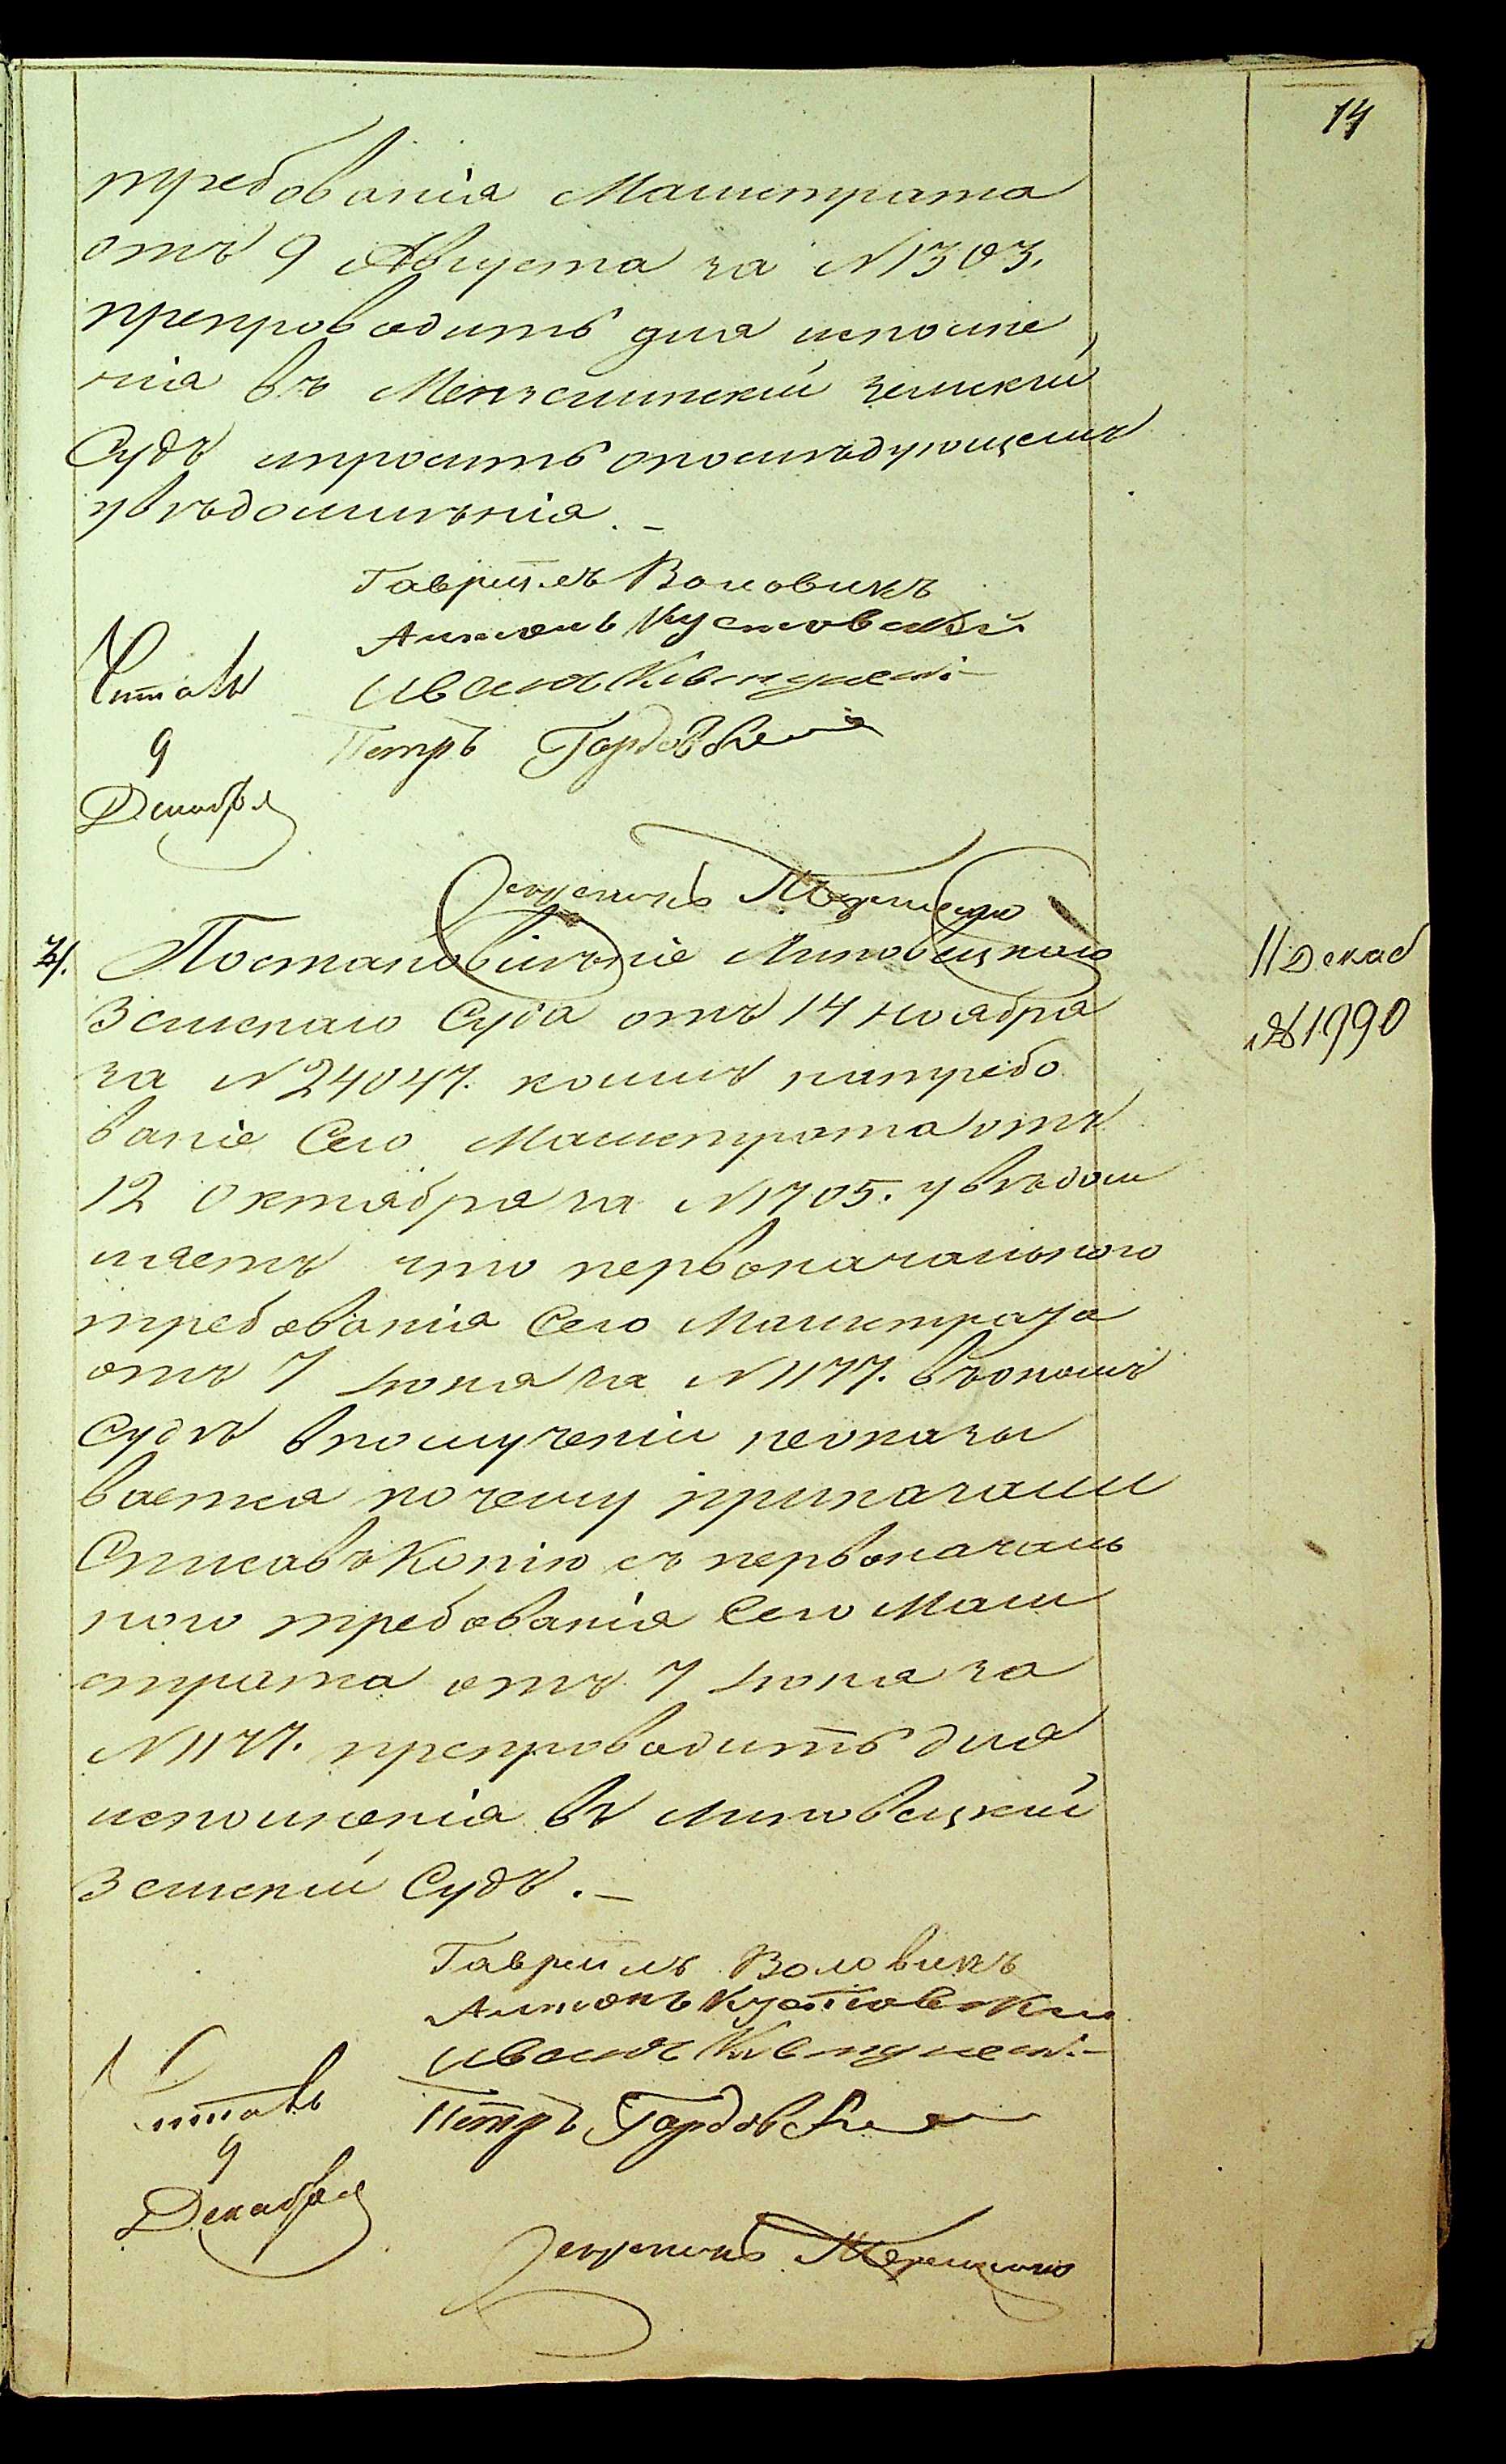 14
требованія Магистрата
отъ 9 Августа за N 1303.
препроводить для исполне
нія въ Мензелинскій земскій
Судъ ипросить опослѣдующемъ
увѣдомлѣнія. –
Гаврiилъ Воловикъ
Антонъ
Иванъ
Петръ
Читалъ
9
Декабря
Терещенко
Постановілѣніе Липовецкаго
Земскаго Суда отъ 14 Ноября
за N 24047. коимъ натребо
ваніе Сего Магистрата отъ
12 Октября за N 1705. увѣдом
ляетъ что первоначального
требованія Сего Магистрата
отъ 7 Іюня за N 1177. въономъ
Судѣ вполученіи неоказы
вается почему приказали
Списавъ Копію съ первоначаль
ного требованія Сего Маги
страта отъ 7 Іюня за
N 1177. препроводить для
исполненія въ Липовецкій
Земскій Судъ. –
11 Декаб
№ 1990
Гаврiилъ Воловикъ
Антонъ
Иванъ
Петръ
Читалъ
9
Декабря
Терещенко